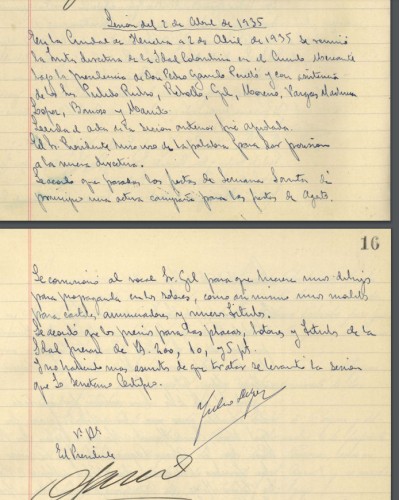 Sesion del 2 de Abril de 1935
En la Ciudad de Huelva a 2 de Abril de 1935 se reunió
la Junta directiva de la Sdad Colombina en el Circulo Mercantil
bajo la Presidencia de Don Pedro Garrido Perelló y con asistencia
de los Sres Pulido Rubio, Rebollo, Gil, Moreno, Vargas Machuca
Lopez, Barroso y
Leida el acta de la sesion anterior fue aprobada.
El Sr. Presidente hizo uso de la palabra para dar posesión
a la nueva directiva.
Se acordó que pasadas las fiestas de Semana Santa de
principio una activa campaña para las fiestas de Agosto.
16
Se comisionó al vocal Sr. Gil para que hiciera unos dibujos
para propaganda en los sobres, como asi mismo unos modelos
para carteles anunciadores, y nuevos titulos.
Se acordó que los precios para las placas, botones y titulos de la
Sdad fueran de Pts. 200, 10, y 5 pts.
Y no habiendo mas asuntos de que tratar se levantó la sesión
que Yo Secretario Certifico.
Julio Lopez
Vº Bº
El Presidente